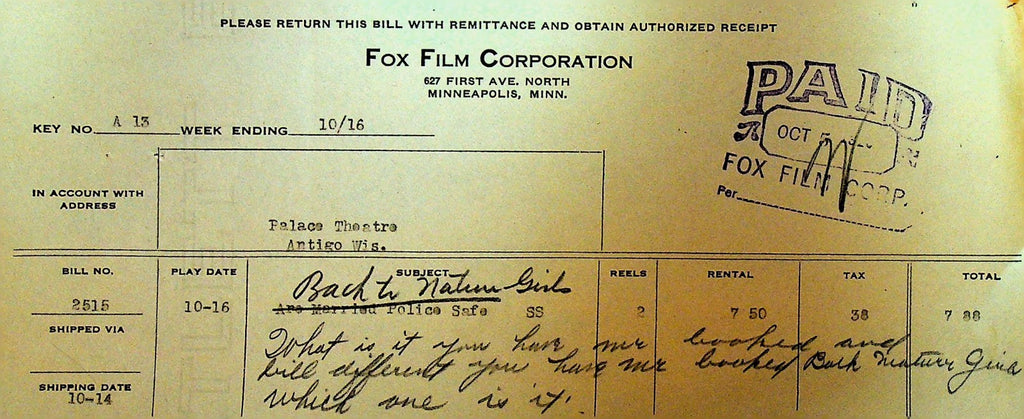 PLEASE RETURN THIS BILL WITH REMITTANCE AND OBTAIN AUTHORIZED RECEIPT
FOX FILM CORPORATION
627 FIRST AVE. NORTH
MINNEAPOLIS, MINN.
PAID
OCT 5
FOX FILM CORP.
Per
KEY NO. A 13 WEEK ENDING 10/16
IN ACCOUNT WITH
ADDRESS
Palace Theatre
Antigo Wis.
BILL NO. PLAY DATE SUBJECT REELS RENTAL TAX TOTAL
Back to Nature Girls
2515 10-16 Are Married Police Safe SS 2 7 50 38 7 88
SHIPPED VIA
What is it you have me booked and
bill different you have me booked Back Nature Girls
SHIPPING DATE
which one is it.
10-14